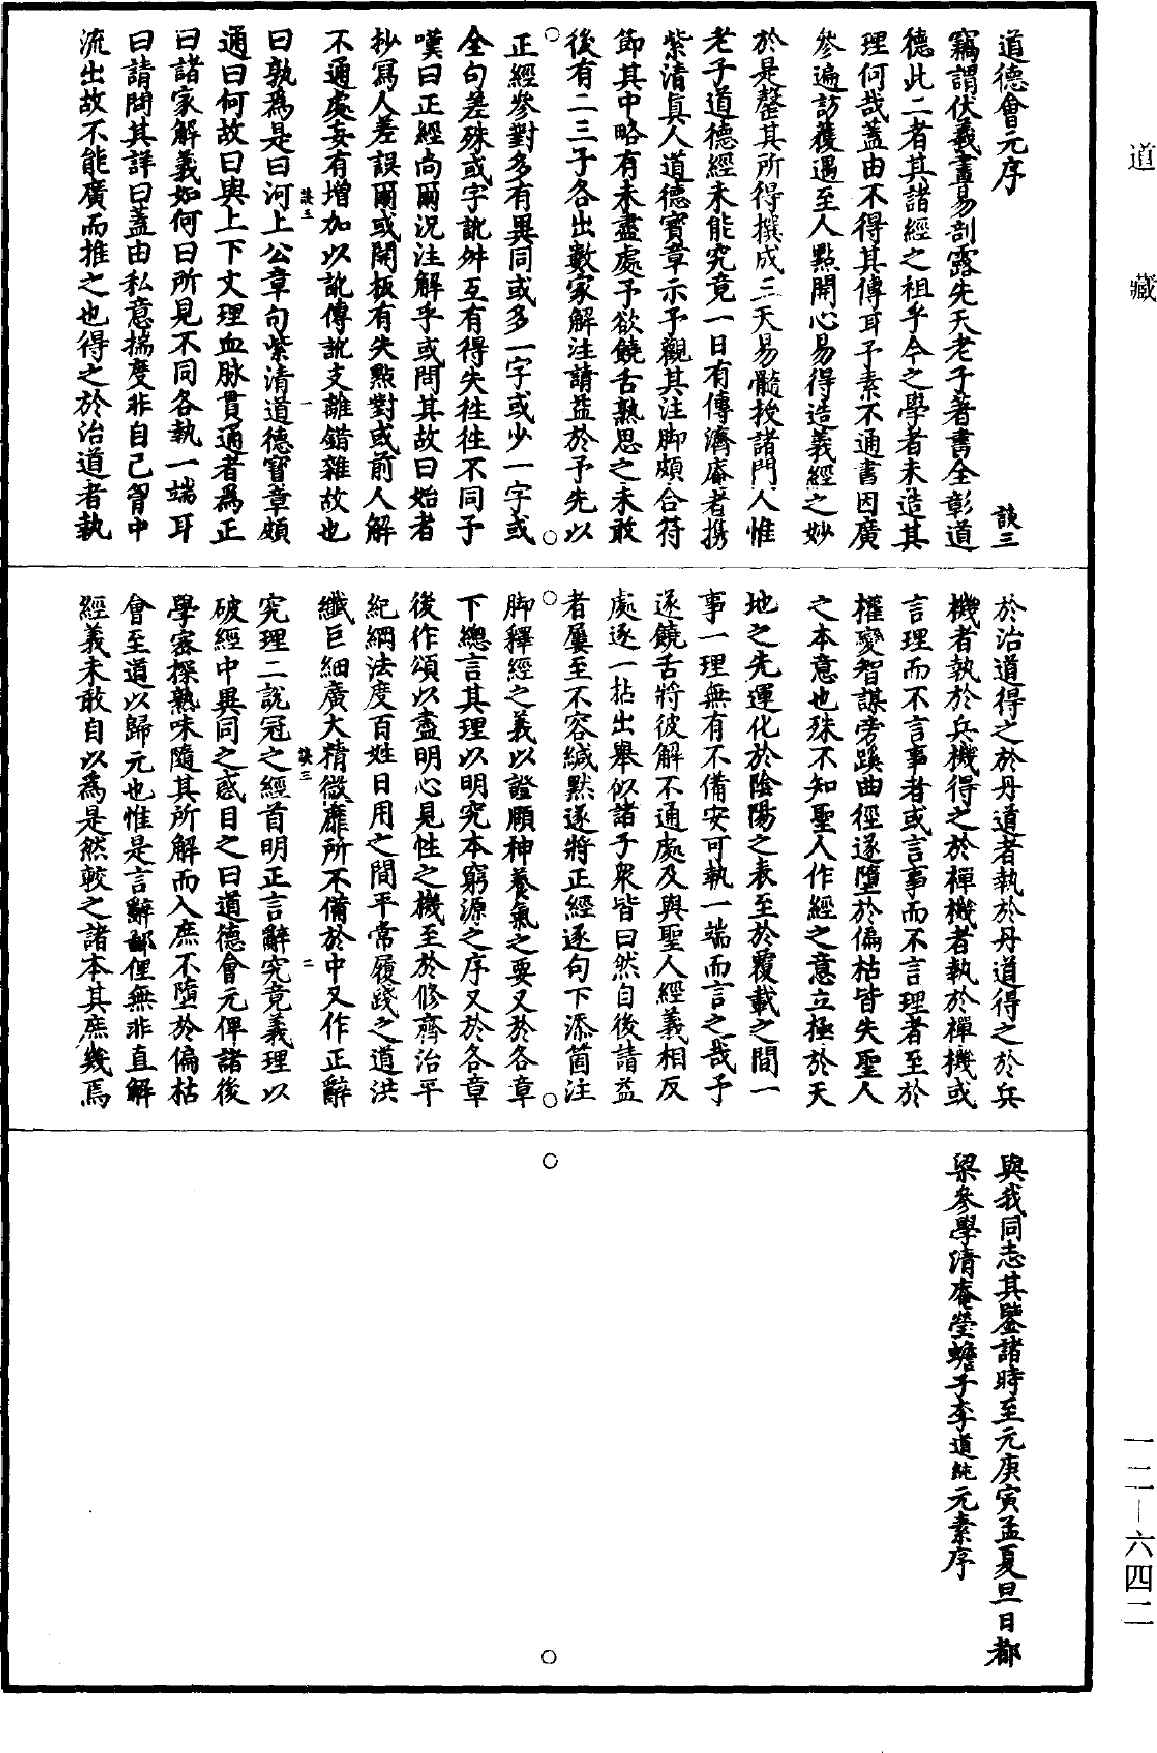 道藏
道德會元序 談三
竊謂伏羲畫易剖露先天老子著書全彰道
德此二者其諸經之祖乎今之學者未造其
理何哉蓋由不得其傳耳予素不通書因廣
參遍訪獲遇至人點開心易得造義經之妙
於是罄其所得撰成三天易髓授諸門人惟
老子道德經未能究竟一日有傳濟庵者攜
紫清真人道德寶章示予觀其注脚頗合符
節其中略有未盡處予欲饒舌熟思之未敢
後有二三子各出數家解注請益於予先以
正經參對多有異同或多一字或少一字或
全句差殊或字訛舛互有得失往往不同予
嘆曰正經尚爾況注解乎或問其故曰始者
抄寫人差誤爾或開板有失點對或前人解
不通處妄有增加以訛傳訛支離錯雜故也
談三 一
曰孰為是曰河上公章句紫清道德寶章頗
通曰何故曰與上下文理血脉貫通者為正
曰諸家解義如何曰所見不同各執一端耳
曰請問其詳曰蓋由私意揣度非自己胷中
流出故不能廣而推之也得之於治道者執
於治道得之於丹道者執於丹道得之於兵
機者執於兵機得之於禪機者執於禪機或
言理而不言事者或言事而不言理者至於
權變智謀旁蹊曲徑遂墮於偏枯皆失聖人
之本意也殊不知聖人作經之意立極於天
地之先運化於陰陽之表至於覆載之間一
事一理無有不備安可執一端而言之哉予
遂饒舌將彼解不通處及與聖人經義相反
處逐一拈出舉似諸子衆皆曰然自後請益
者屢至不容緘默遂將正經逐句下添箇注
脚釋經之義以證頤神養氣之要又於各章
下總言其理以明究本窮源之序又於各章
後作頌以盡明心見性之機至於修齊治平
紀綱法度百姓日用之間平常履踐之道洪
纖巨細廣大精微靡所不備於中又作正辭
談三 二
究理二說冠之經首明正言辭究竟義理以
破經中異同之惑目之曰道德會元俾諸後
學密探熟味隨其所解而入庶不墮於偏枯
會至道以歸元也惟是言辭鄙俚無非直解
經義未敢自以為是然較之諸本其庶幾焉
與我同志其鑒諸時至元庚寅孟夏旦日都
梁參學清庵瑩蟾子李道純元素序
一二—六四二